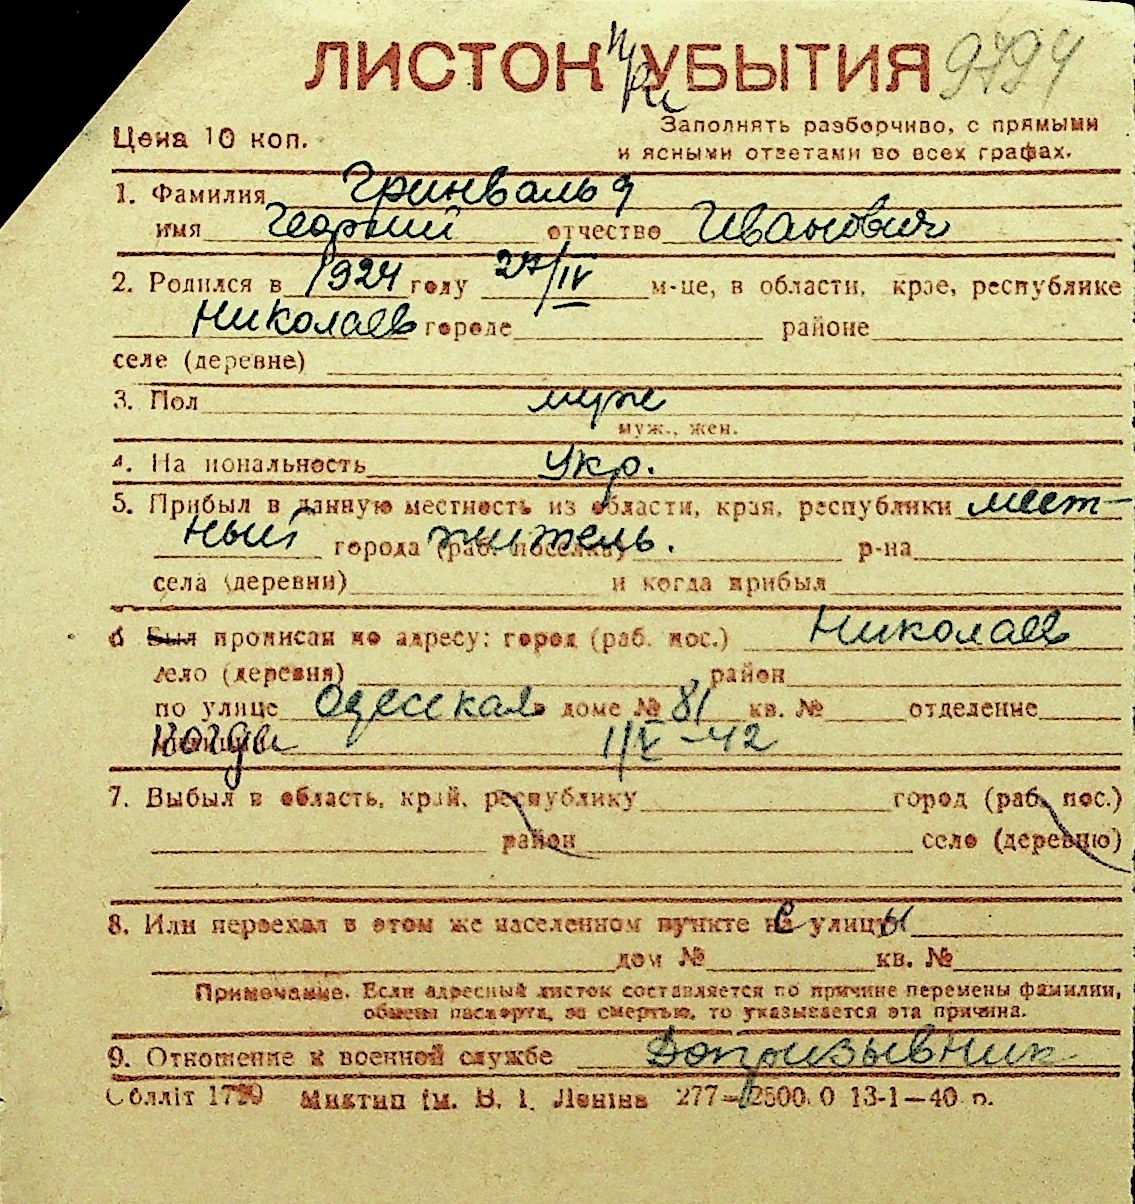 ЛИСТОК при УБЫТИЯ 9794
Цена 10 коп.
Заполнять разборчиво, с прямыми
и ясными ответами во всех графах.
1. Фамилия Гринвальд
имя Георгий отчество Иванович
2. Родился в 1924 году 27/IV м-це, в области, крае, республике
Николаев городе районе
селе (деревне)
3. Пол муж
муж., жен.
4. На иональность Укр.
5. Прибыл в данную местность из области, края, республики мест-
ный города (раб. поселка) житель. р-на
села (деревни) и когда прибыл
6 Был прописан по адресу: город (раб. пос.) Николаев
село (деревня) район
по улице Одесская в доме № 81 кв. № отделение
милиции когда 1/V-42
7. Выбыл в область, край, республику город (раб. пос.)
район село (деревню)
8. Или переехал в этом же населенном пункте на с улицы
дом № кв. №
Примечание. Если адресный листок составляется по причине перемены фамилии,
обмены паспорта, за смертью, то указывается эта причина.
9. Отношение к военной службе Допризывник
Облліт 1790 Миктип ім. В. І. Леніна 277—2500. 0 13-1—40 р.